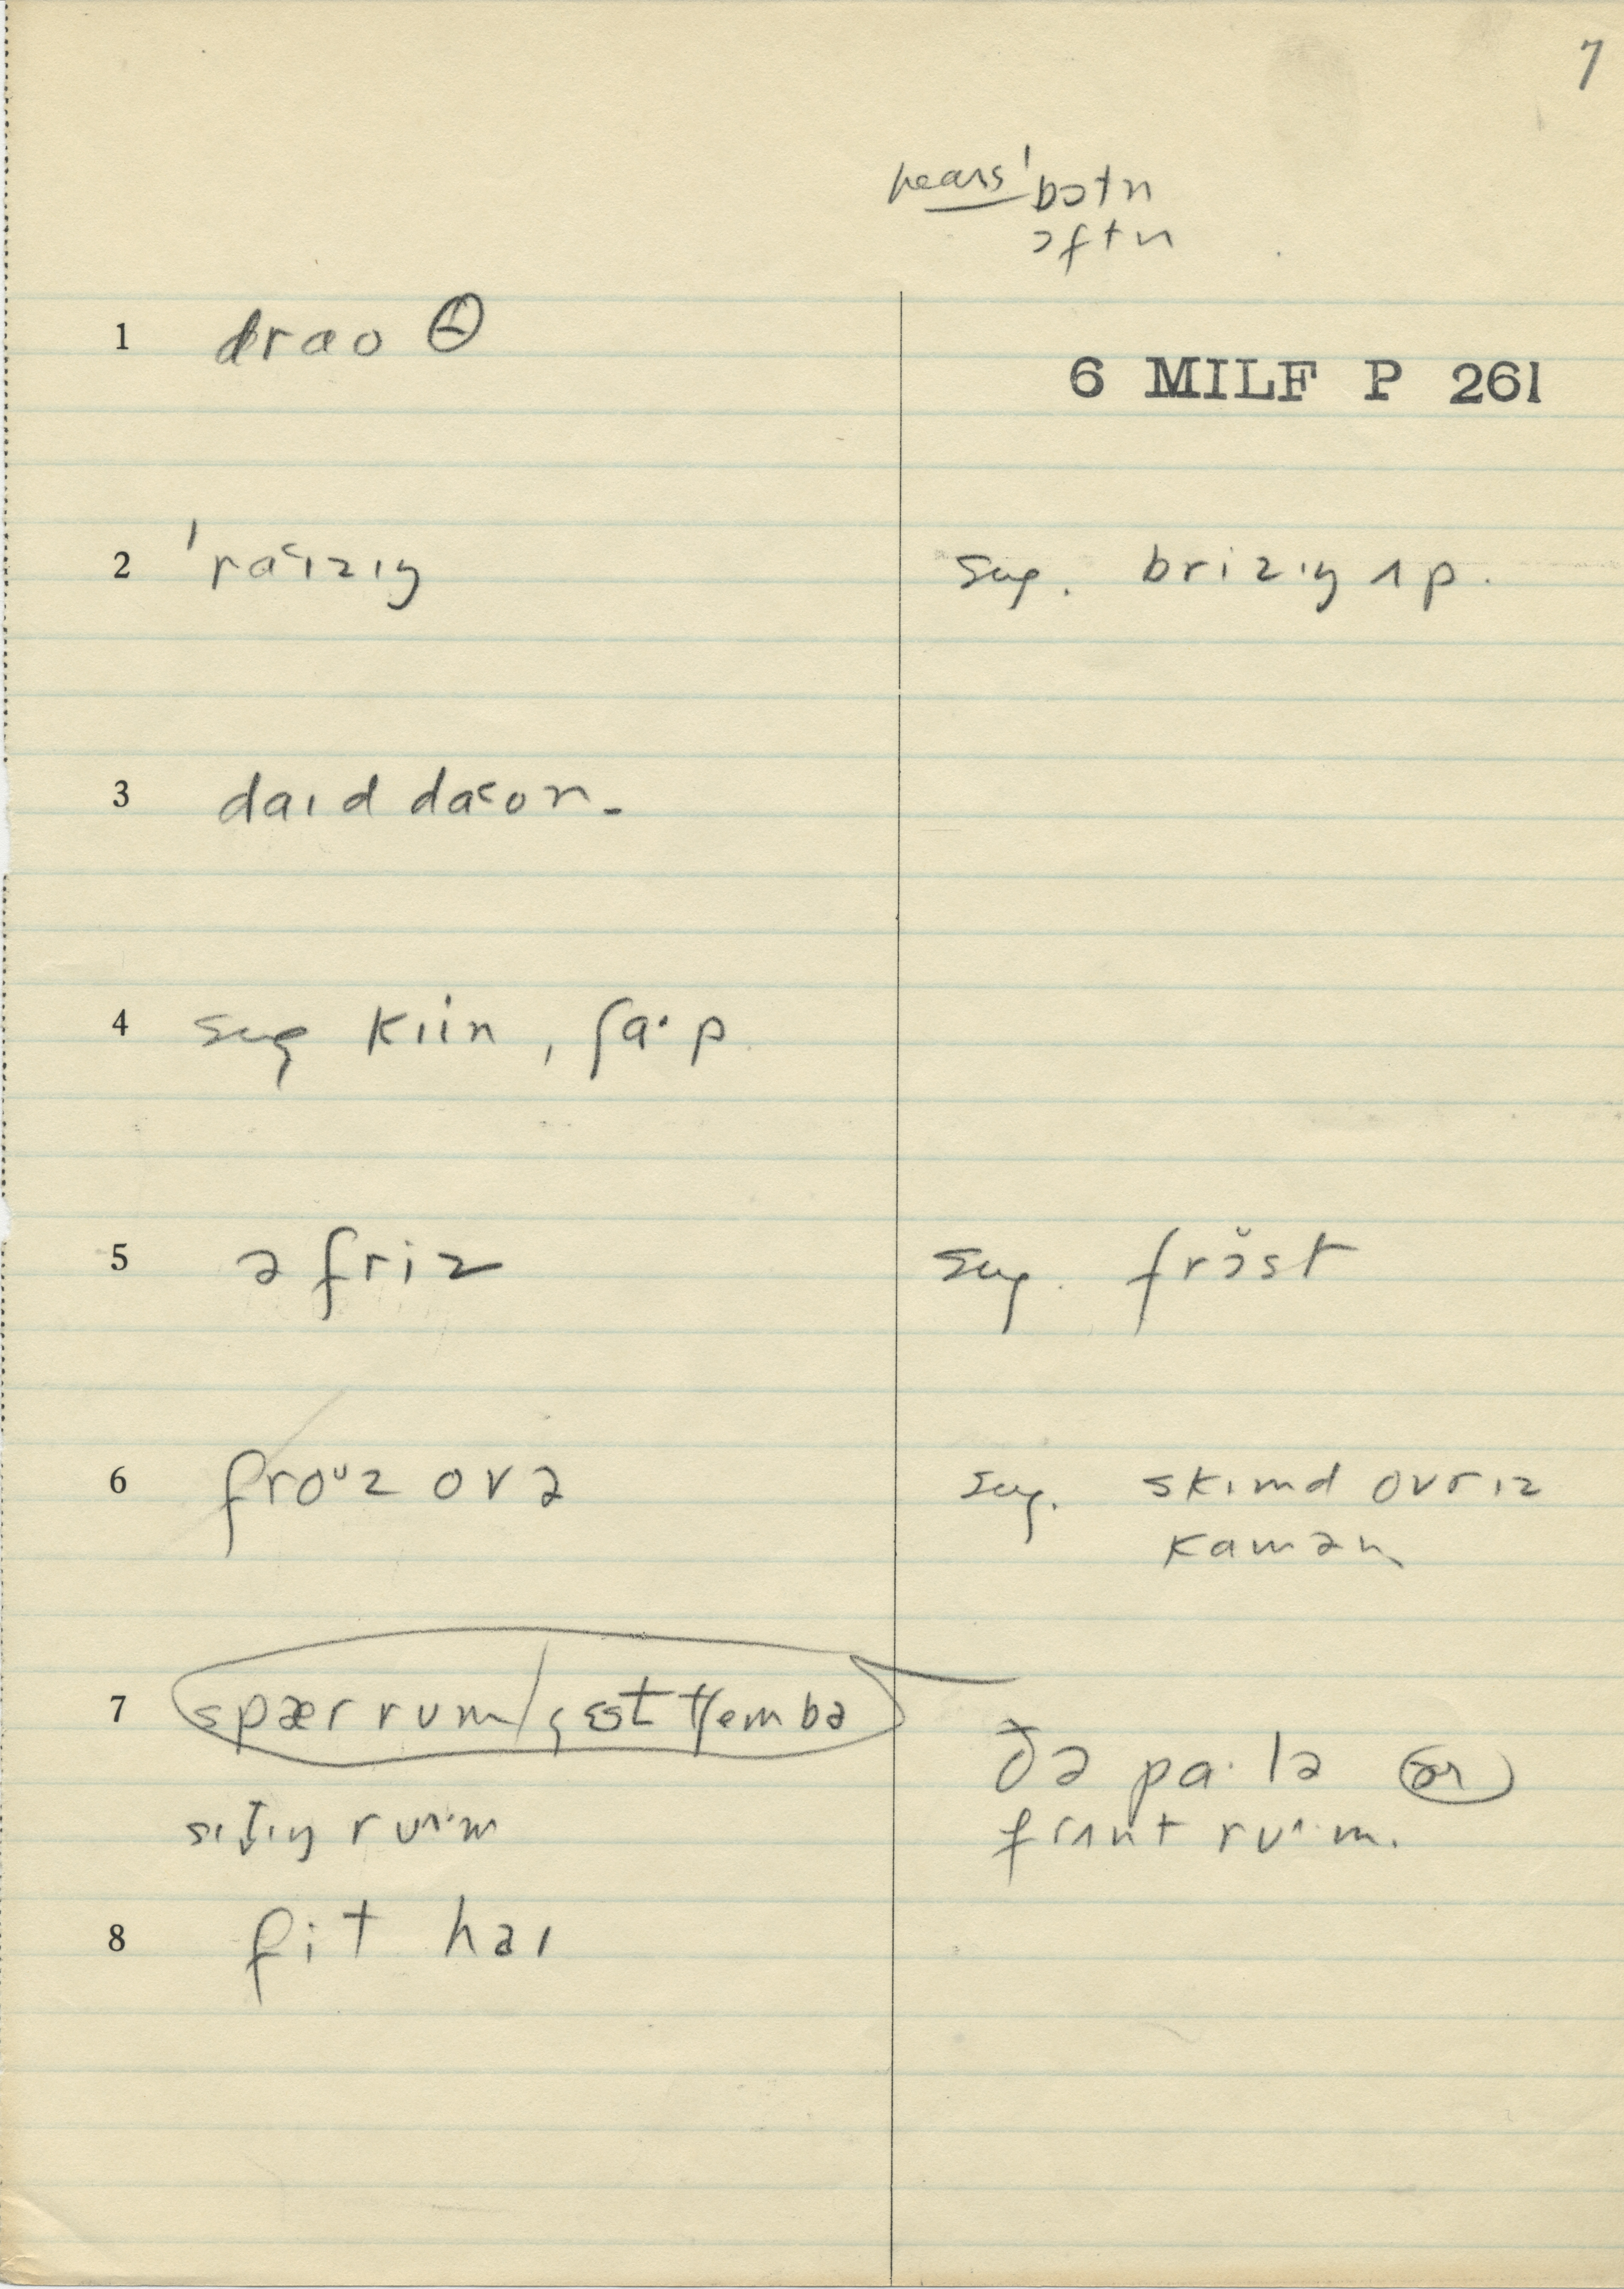 7
hears ˈbɔtn
ɔftn
1 draoθ
6 MILF P 261
2 ˈraɪzɪŋ
sug. brizɪŋ ʌp.
3 daɪd daon.
4 sug kiin, ʃa·p
5 ə friz
sug. frɔ̆st
6 froᶸz ovə
sug. skɪmd ovr ɪz
kamən
7 spær rum / gɛst tʃembə
ðə pa·lə ər
sɪt̬ɪŋ ruᶺ·m
frʌnt ruᶺ·m.
8 fit haɪ